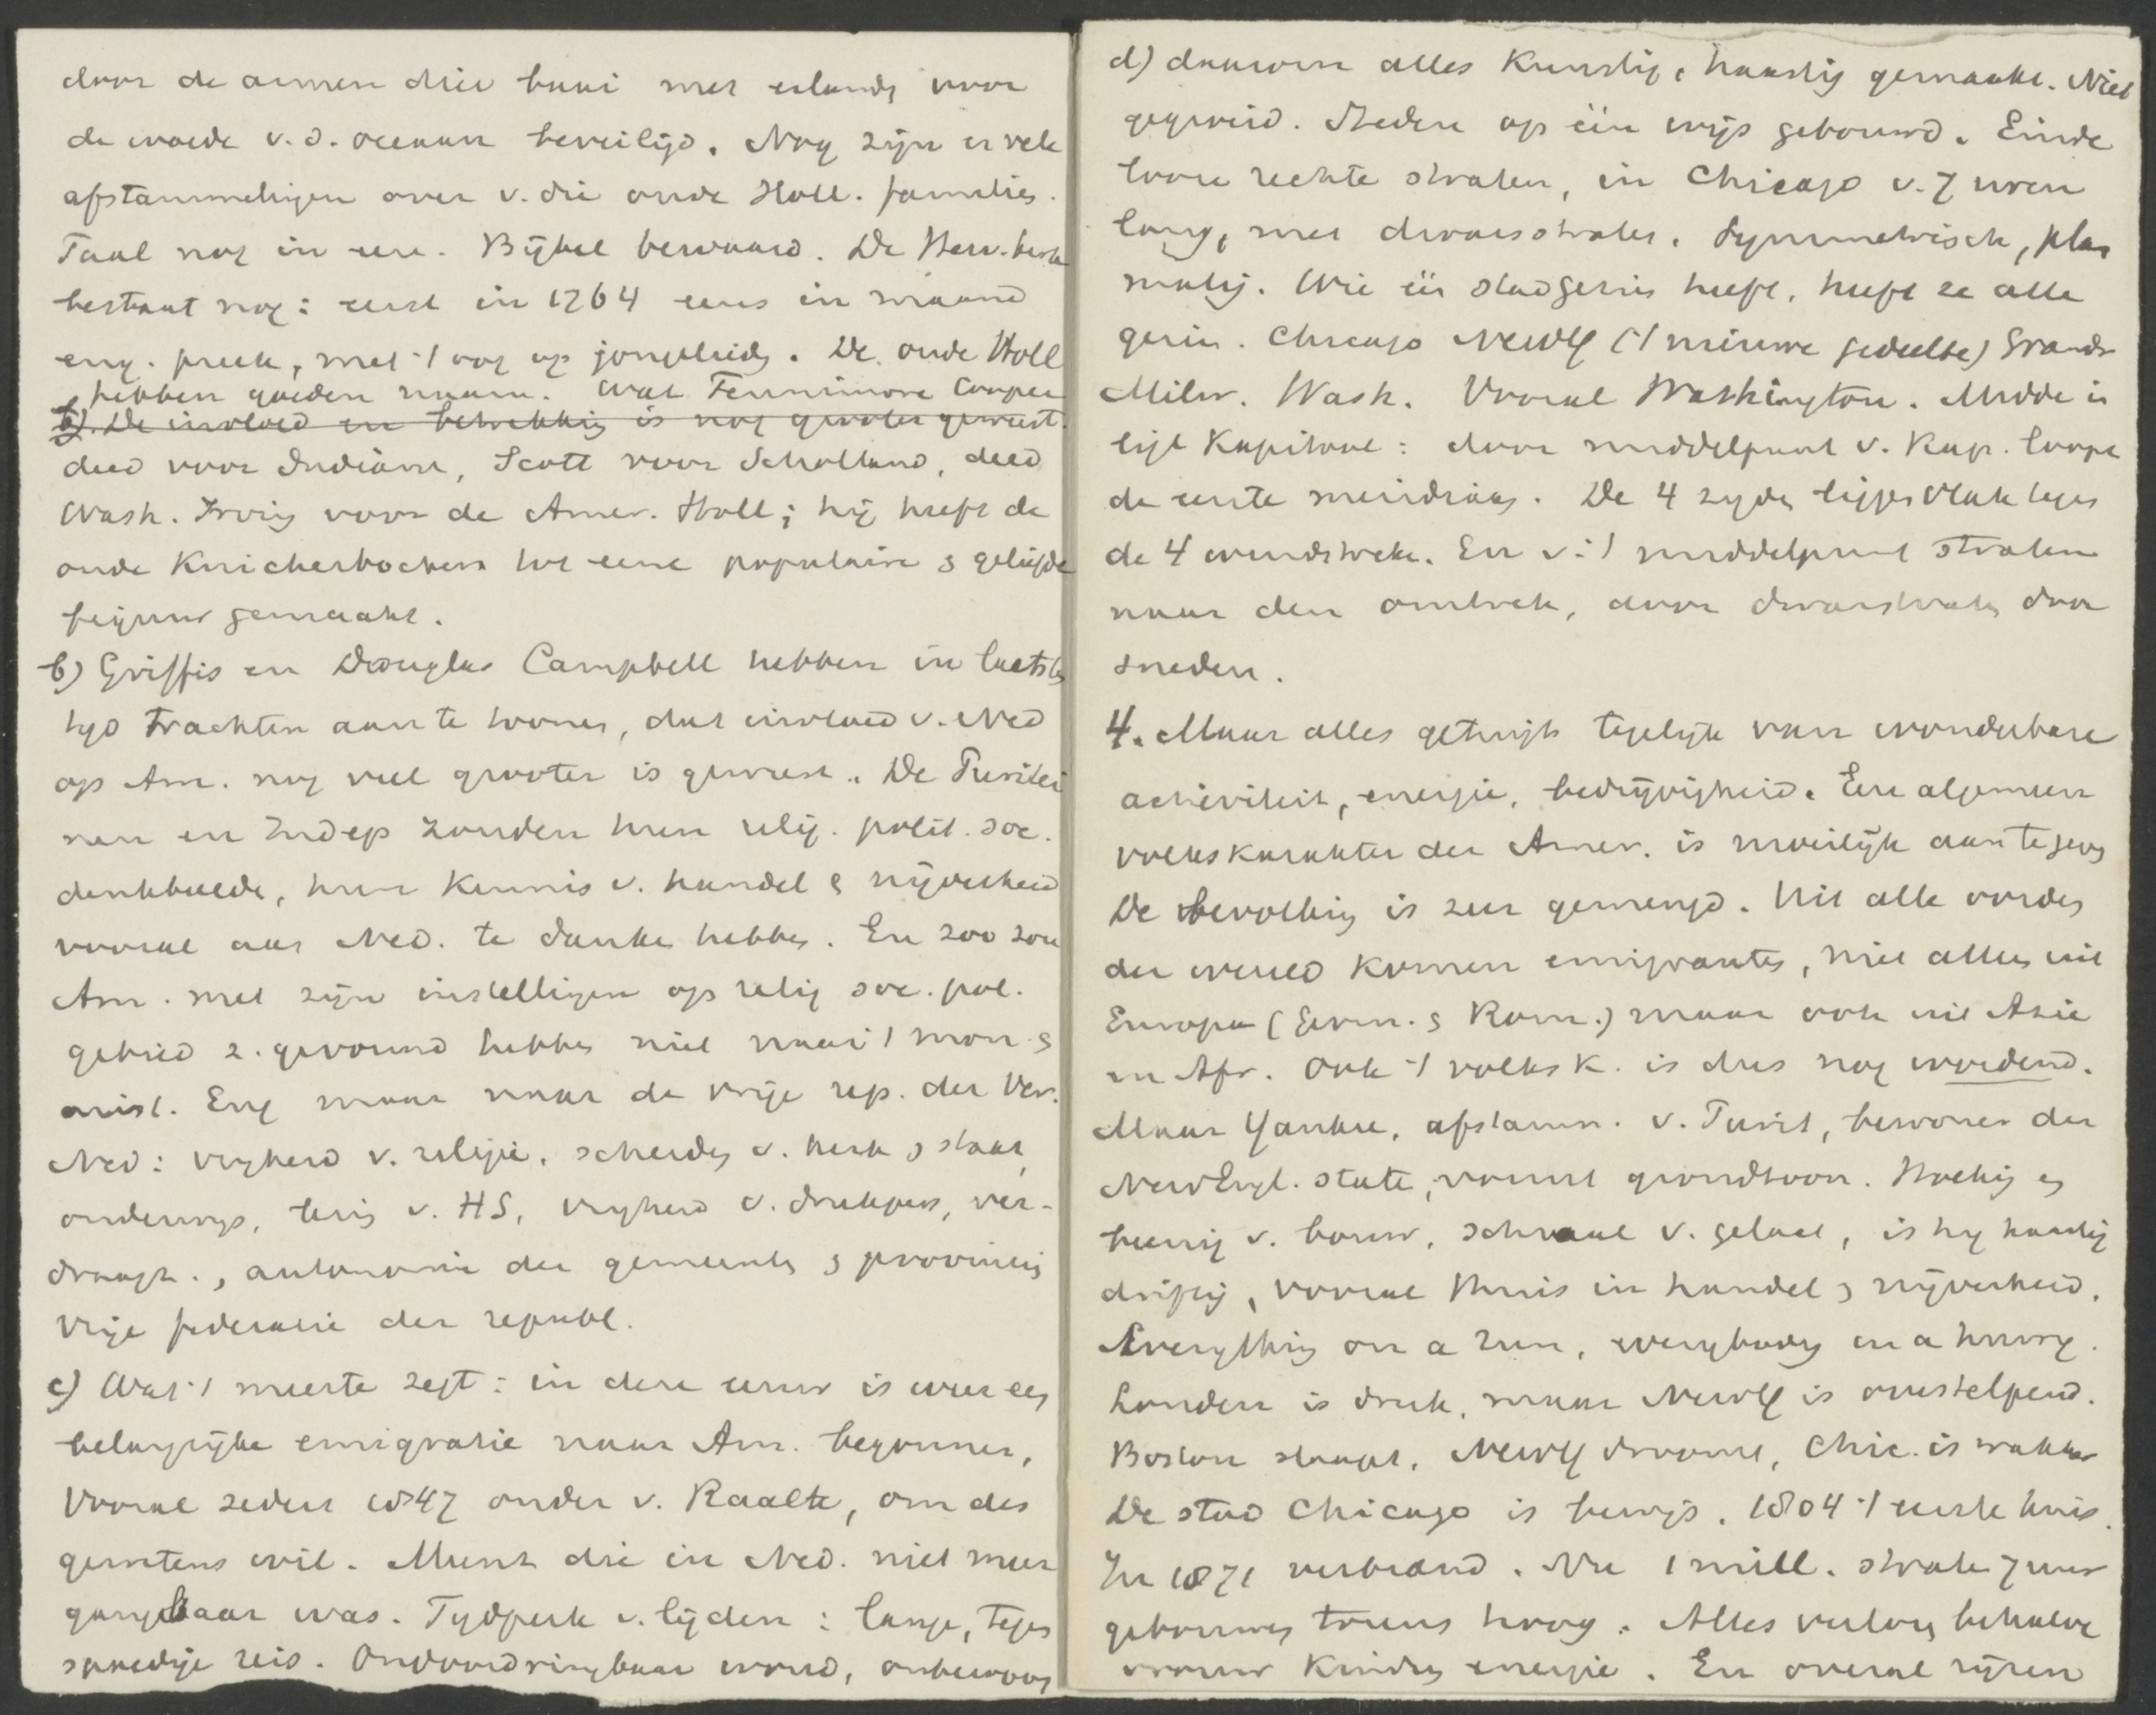 door de armen dier baai met eilandj voor
de woede v. d. oceaan beveiligd. Nog zijn er vele
afstammelingen over v. die oude Holl. families.
Taal nog in eere. Bijbel bewaard. De Herv. kerk
bestaat nog: eerst in 1764 eens in maand
eng. preek, met 't oog op jongelieden. De oude Holl
hebben goeden naam. Wat Fennimore Cooper
b). De invloed en betrekking is nog grooter geweest.
deed voor Indianen, Scott voor Schotland, deed
Wash. Irving voor de Amer. Holl; hij heeft de
oude Knickerbockers tot eene populaire & geliefde
figuur gemaakt.
b) Griffis en Douglas Campbell hebben in laatste
tijd trachten aan te toonen, dat invloed v. Ned
op Am. nog veel grooter is geweest. De Puritei
nen en Indep zouden hun relig. polit. soc.
denkbeelde, hun kennis v. handel & nijverheid
vooral aan Ned. te danken hebben. En zoo zou
Am. met zijn instellingen op relig soc. pol.
gebied z. gevormd hebben niet naar 't mon. &
arist. Eng maar naar de vrije rep. der Ver.
Ned: vrijheid v. religie, scheiding v. kerk & staat,
onderwijs, lezing v. HS, vrijheid v. drukpers, ver-
draagz., autonomie der gemeenten & provincies
vrije federatie der republ.
c) Wat 't meeste zegt: in deze eeuw is weer een
belangrijke emigratie naar Am. begonnen,
vooral sedert 1847 onder v. Raalte, om des
gewetens wil. Munt die in Ned. niet meer
gangbaar was. Tijdperk v. lijden: lange, tegen
spoedige reis. Ondoordringbaar woud, onbewoon
d) daarom alles kunstig, haastig gemaakt. Niet
gegroeid. Steden op één wijs gebouwd. Einde
looze rechte straten, in Chicago v. 7 uren
lang, met dwarsstraten. Symmetrisch, plan
matig. Wie één stad gezien heeft, heeft ze alle
gezien. Chicago NewY ('t nieuwe gedeelte) Grands
Milw. Wash. Vooral Washington. Midden in
ligt Kapitool: door middelpunt v. Kap. loopt
de eerste meridiaan. De 4 zijden liggen vlak tegen
de 4 windstreken. En v. 't middelpunt straten
naar den omtrek, door dwarsstraten door
sneden.
4. Maar alles getuigt tegelijk van wonderbare
activiteit, energie, bedrijvigheid. Een algemeen
volkskarakter der Amer. is moeilijk aan te geven
De bevolking is zeer gemengd. Uit alle oorden
der wereld komen emigranten, niet alleen uit
Europa (Germ. & Rom.) maar ook uit Azie
en Afr. Ook 't volksk. is dus nog wordend.
Maar Yankee, afstamm. v. Purit, bewoner der
NewEngl. state, vormt grondtoon. Hoekig en
beenig v. bouw, schraal v. gelaat, is hij haastig
driftig, vooral thuis in handel & nijverheid.
Everything on a run, everybody in a hurry.
Londen is druk, maar NewY is overstelpend.
Boston slaapt, NewY droomt, Chic. is wakker
De stad Chicago is bewijs. 1804 't eerste huis.
In 1871 verbrand. Nu 1 mill. straten 7 uur
gebouwen torens hoog. Alles verloren behalve
vrouw kinderen energie. En overal rijzen